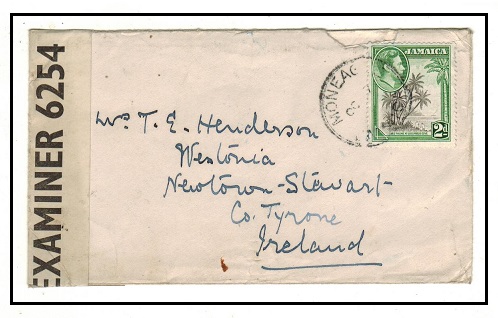 EXAMINER 6254
JAMAICA
MONEAG
2d
Mrs T. E. Henderson
Westonia
Newtown-Stewart
Co. Tyrone
Ireland